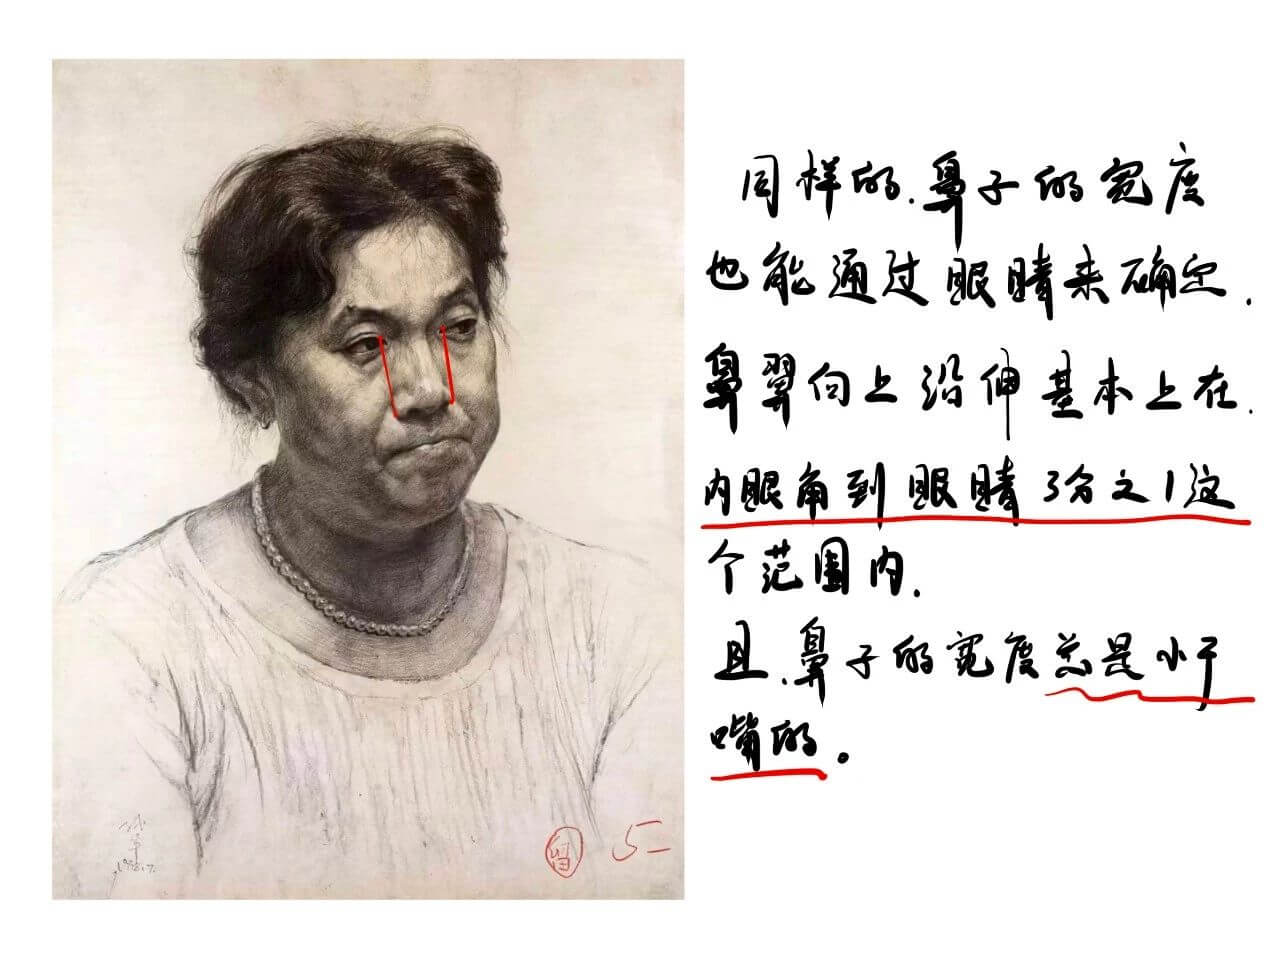 同样的.鼻子的宽度
也能通过眼睛来确定.
鼻翼向上沿伸基本上在.
内眼角到眼睛3分之1这
个范围内.
且.鼻子的宽度总是小于
嘴的。
留
5